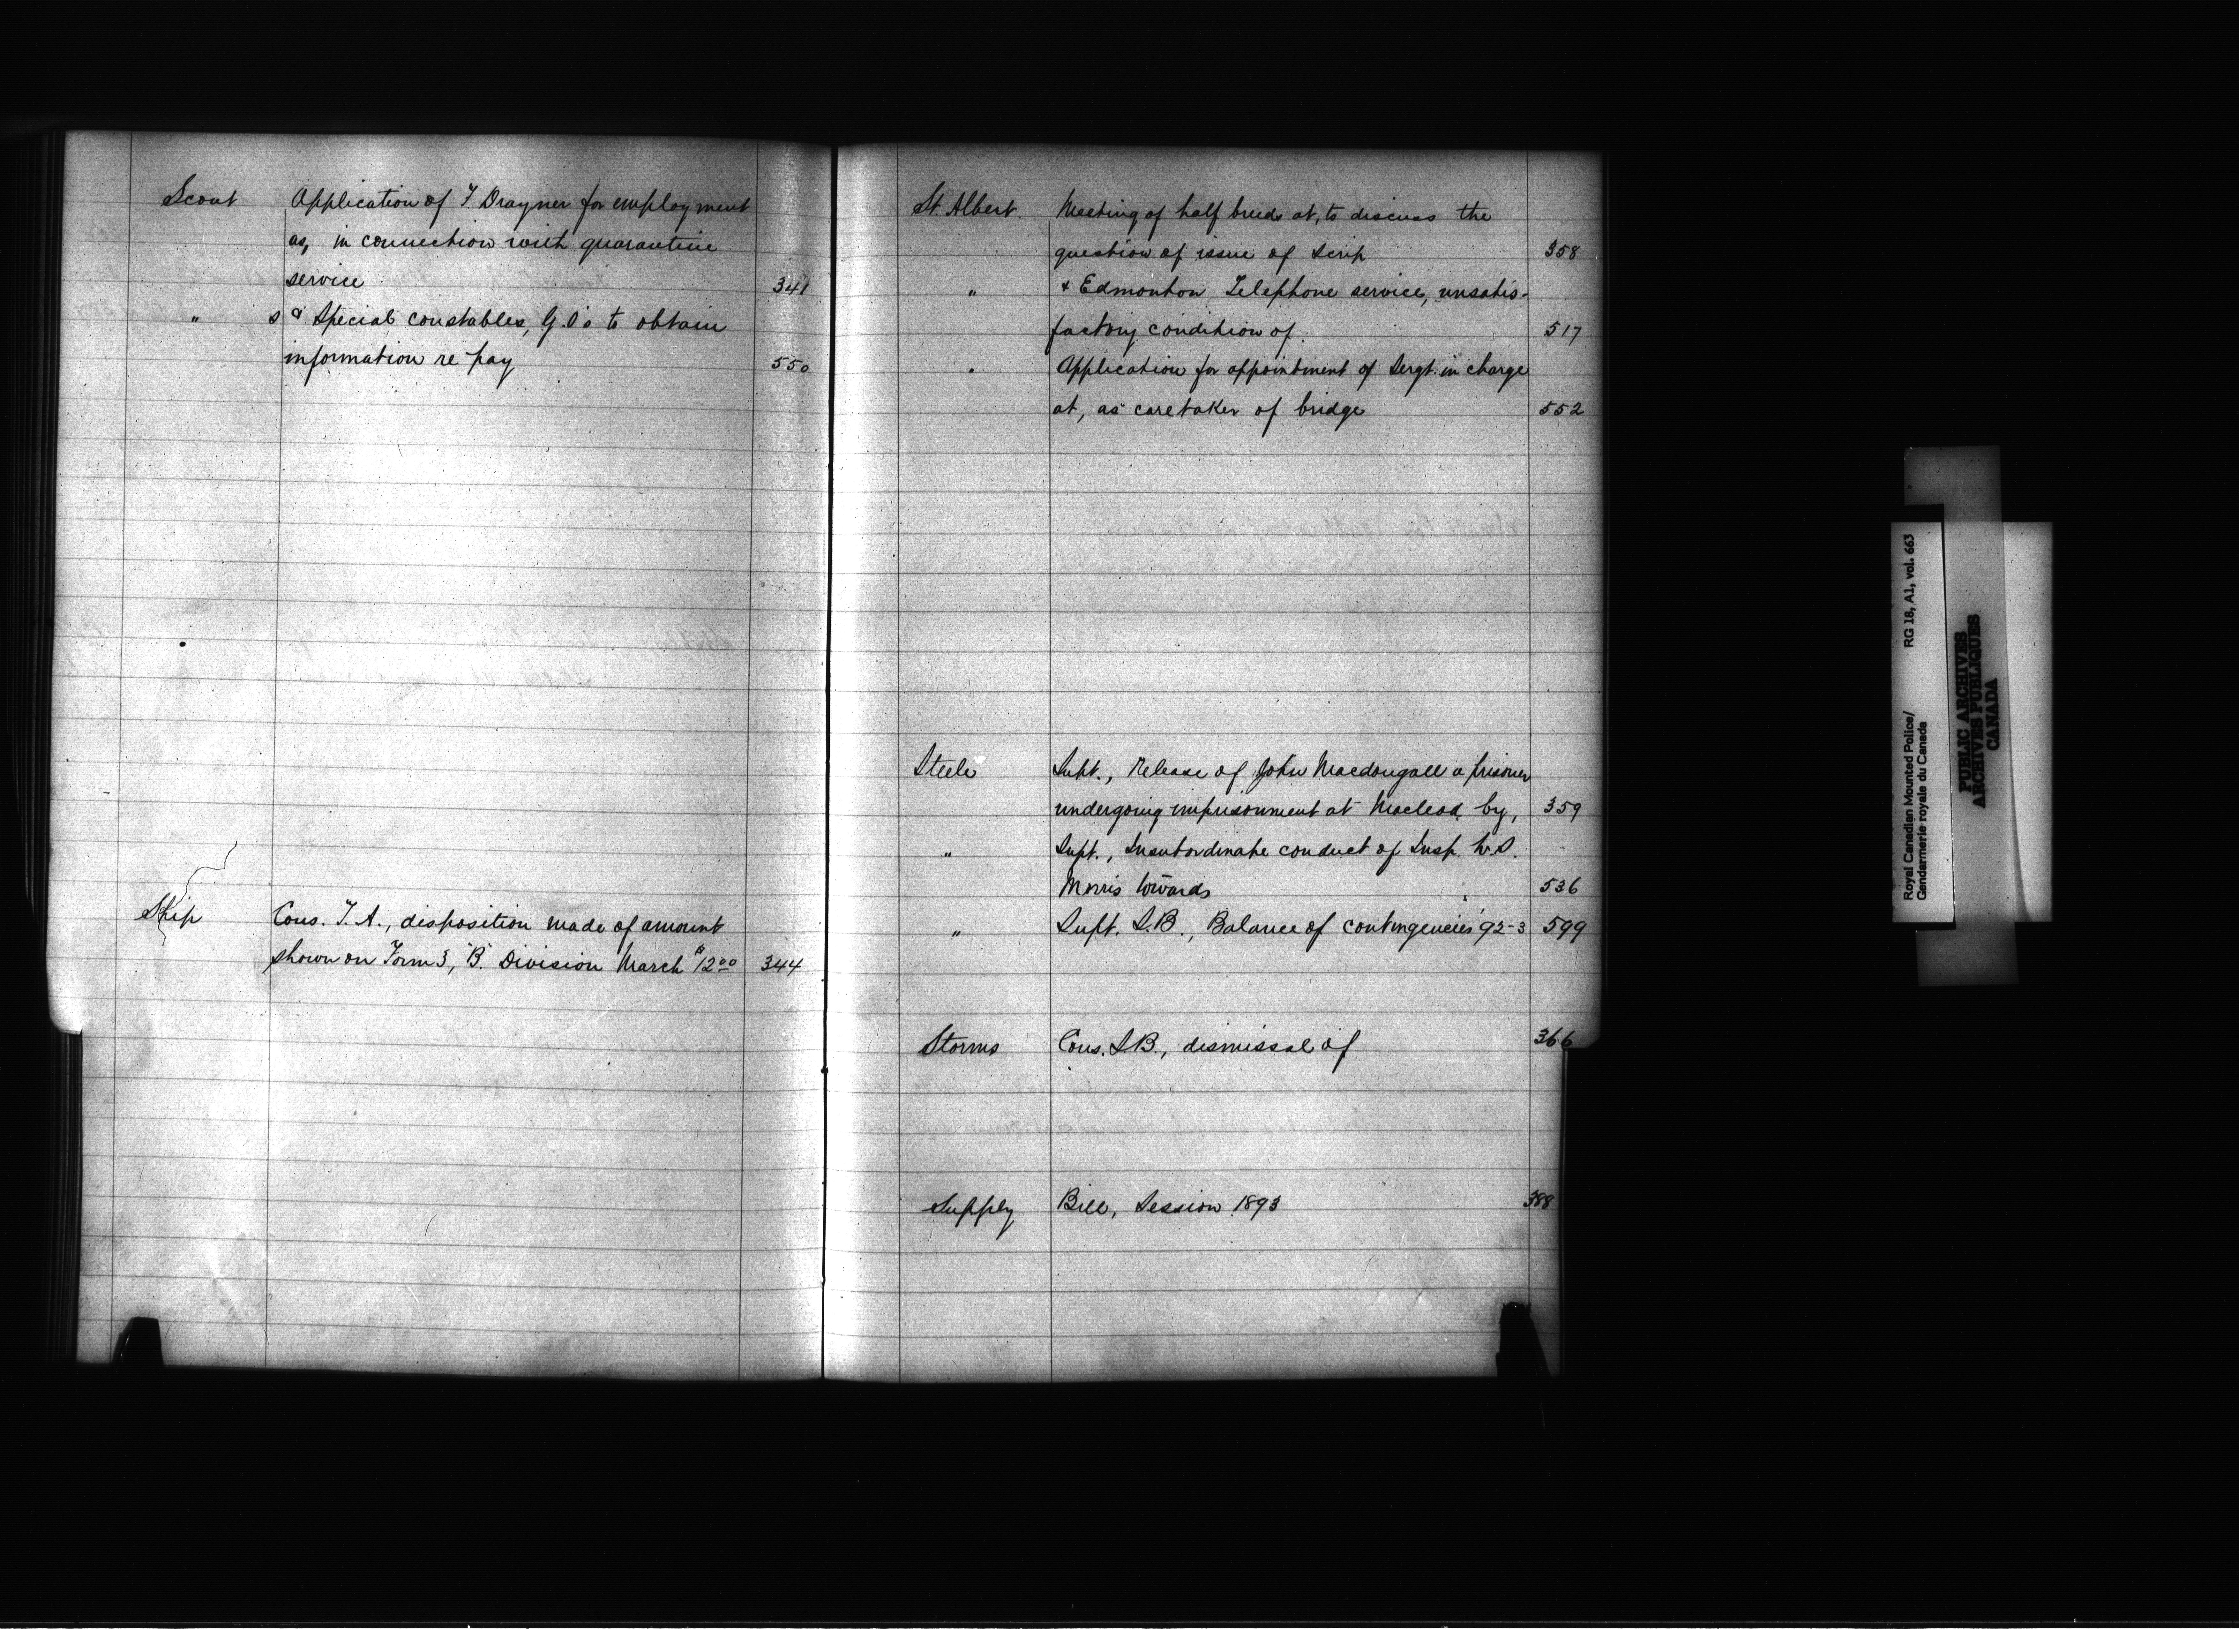 Scout Application of T Drayner for employment
as, in connection with quarantine
service 341
" s & Special constables, G.O's to obtain
information re pay 550
Skip Cons. T. A., disposition made of amount
shown on Form 3, "B" Division March $12.00 344
St. Albert. Meeting of half breeds at, to discuss the
question of issue of Scrip 358
" & Edmonton Telephone service, unsatis-
factory condition of. 517
" Application for appointment of Sergt. in charge
at, as caretaker of bridge 552
Steele Supt., Release of John Macdougall a prisoner
undergoing imprisonment at Macleod by, 359
" Supt., Insubordinate conduct of Insp. W.S.
Morris towards 536
" Supt. S.B., Balance of contingencies '92-3 599
Storms Cons. S.B., dismissal of 366
Supply Bill, Session 1893 388
Royal Canadian Mounted Police/ RG 18, A1, vol. 663
Gendarmerie royale du Canada
PUBLIC ARCHIVES
ARCHIVES PUBLIQUES
CANADA